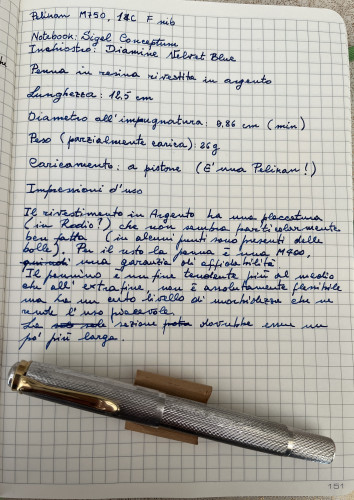 Pelikan M750, 14C F nib
Notebook: Sigel Conceptum
Inchiostro: Diamine Velvet Blue
Penna in resina rivestita in argento
Lunghezza: 12,5 cm
Diametro all'impugnatura: 0,86 cm (min)
Peso (parzialmente carica): 26g
Caricamento: a pistone (E' una Pelikan!)
Impressioni d'uso
Il rivestimento in Argento ha una placcatura
(in Rodio?) che non sembra particolarmente
ben fatta (in alcuni punti sono presenti delle
bolle). Per il resto la penna è una M400,
quindi una garanzia di affidabilità
Il pennino è un fine tendente più al medio
che all'extrafine, non è assolutamente flessibile
ma ha un certo livello di morbidezza che ne
rende l'uso piacevole.
La sezione dovrebbe essere un
po' più larga.
151